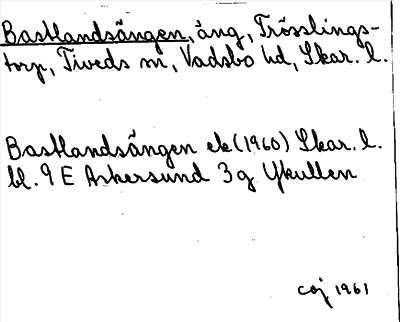 Bastlandsängen, äng, Trösslings-
torp, Tiveds sn, Vadsbo hd, Skar. l.
Bastlandsängen ek (1960) Skar. l.
bl. 9 E Askersund 3 g Ykullen
coj 1961